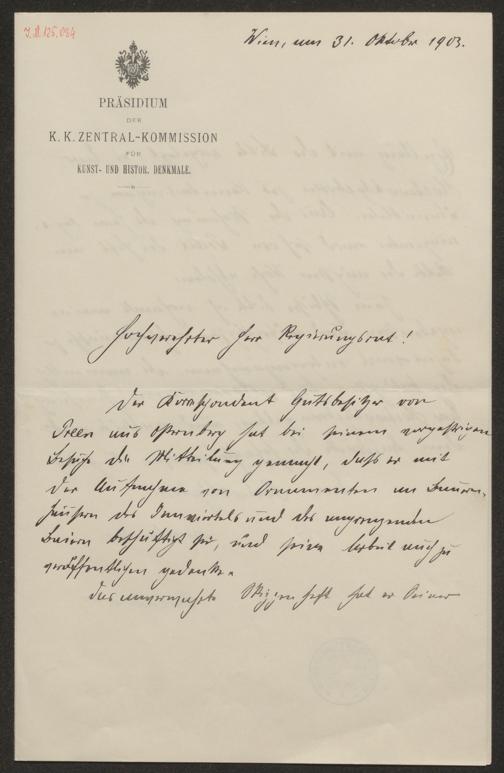 I.N. 125.034
Wien, am 31. Oktober 1903.
PRÄSIDIUM
DER
K. K. ZENTRAL-KOMMISSION
FÜR
KUNST- UND HISTOR. DENKMALE.
Hochverehrter Herr Regierungsrat!
Der Korrespondent Gutsbesitzer von
Preen aus Osternberg hat bei seinem vorgestrigen
Besuche die Mitteilung gemacht, daß er mit
der Aufnahme von Ornamenten an Bauern-
häusern des Innviertels und des angrenzenden
Baiern beschäftigt sei, und seine Arbeit auch zu
veröffentlichen gedenke.
Das unverwahrte Skizzenheft hat er